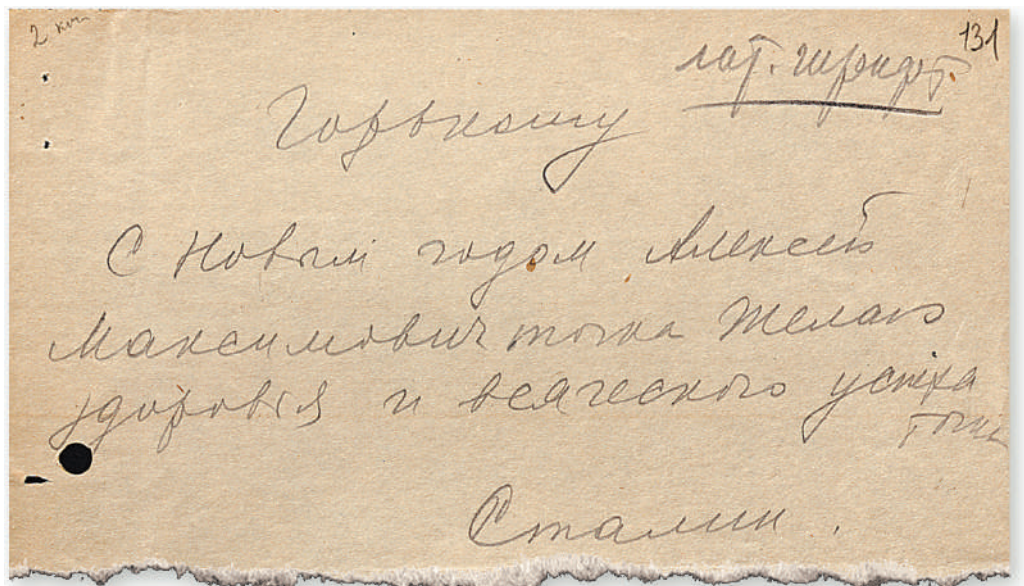 2 коп.
131
лат. шрифт.
Горькому
С Новым годом Алексей
Максимович точка Желаю
здоровья и всяческого успеха
точка
Сталин.